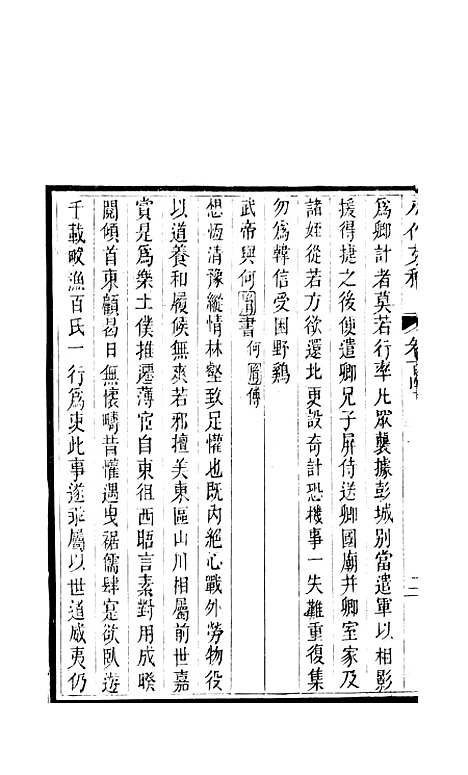 爲卿計者莫若行率此眾襲據彭城別當遣軍以相影
援得捷之後便遣卿兄子屏侍送卿國廟并卿室家及
諸姪從若方欲還北更設奇計恐機事一失難重復集
勿爲韓信受困野鷄
武帝與何胤書何胤傳
想恆清豫縱情林壑致足懽也既内絕心戰外勞物役
以道養和履候無爽若邪擅美東區山川相屬前世嘉
賞是爲樂土僕推遷薄宦自東徂西晤言素對用成睽
闊傾首東顧曷日無懷疇昔懽遇曳裾儒肆寔欲臥遊
千載畋漁百氏一行爲吏此事遂乖屬以世道威夷仍